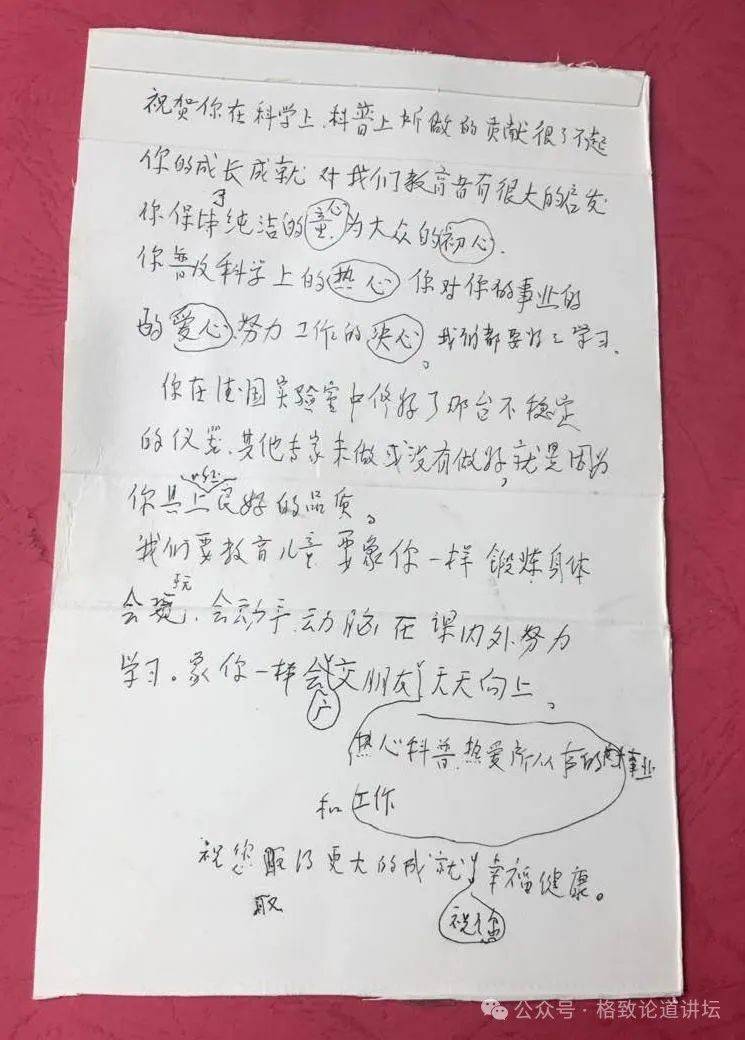 祝贺你在科学上、科普上所做的贡献很了不起
你的成长成就对我们教育者有很大的启发
你保持纯洁的童心为大众的初心.
你普及科学上的热心 你对你的事业的
的爱心、努力工作的决心。我们都要好好学习.
你在德国实验室中修好了那台不稳定
的仪器、其他专家未做或没有做好,就是因为
你具上良好的品质。
我们要教育儿童 要象你一样 锻炼身体
会玩、会动手、动脑、在课内外努力
学习。象你一样广交朋友 天天向上。
热心科普、热爱所从事的事业
和工作
祝您取得更大的成就!幸福健康。
取
祝你
公众号·格致论道讲坛